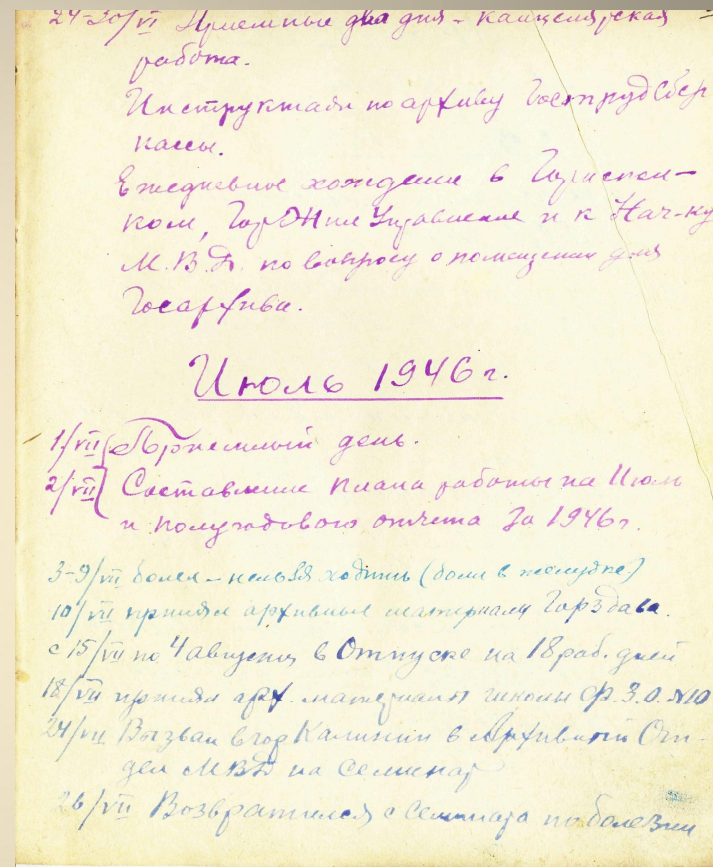 24-30/VI Приемные два дня - канцелярская
работа.
Инструктаж по архиву Гострудсбер
кассы.
Ежедневное хождение в Гориспол-
ком, ГорЖилУправление и к Нач-ку
М.В.Д. по вопросу о помещении для
Госархива.
Июль 1946 г.
1/VII Приемный день.
2/VII Составление плана работы на Июль
и полугодового отчета за 1946 г.
3-9/VII болел - нельзя ходить (боли в желудке)
10/VII принял архивные материалы Горздава.
с 15/VII по 4 августа в Отпуске на 18 раб. дней
18/VII принял арх. материалы школы Ф.З.О. №10
24/VII Вызван в гор Калинин в Архивный От-
дел МВД на Семинар
26/VII Возвратился с Семинара по болезни